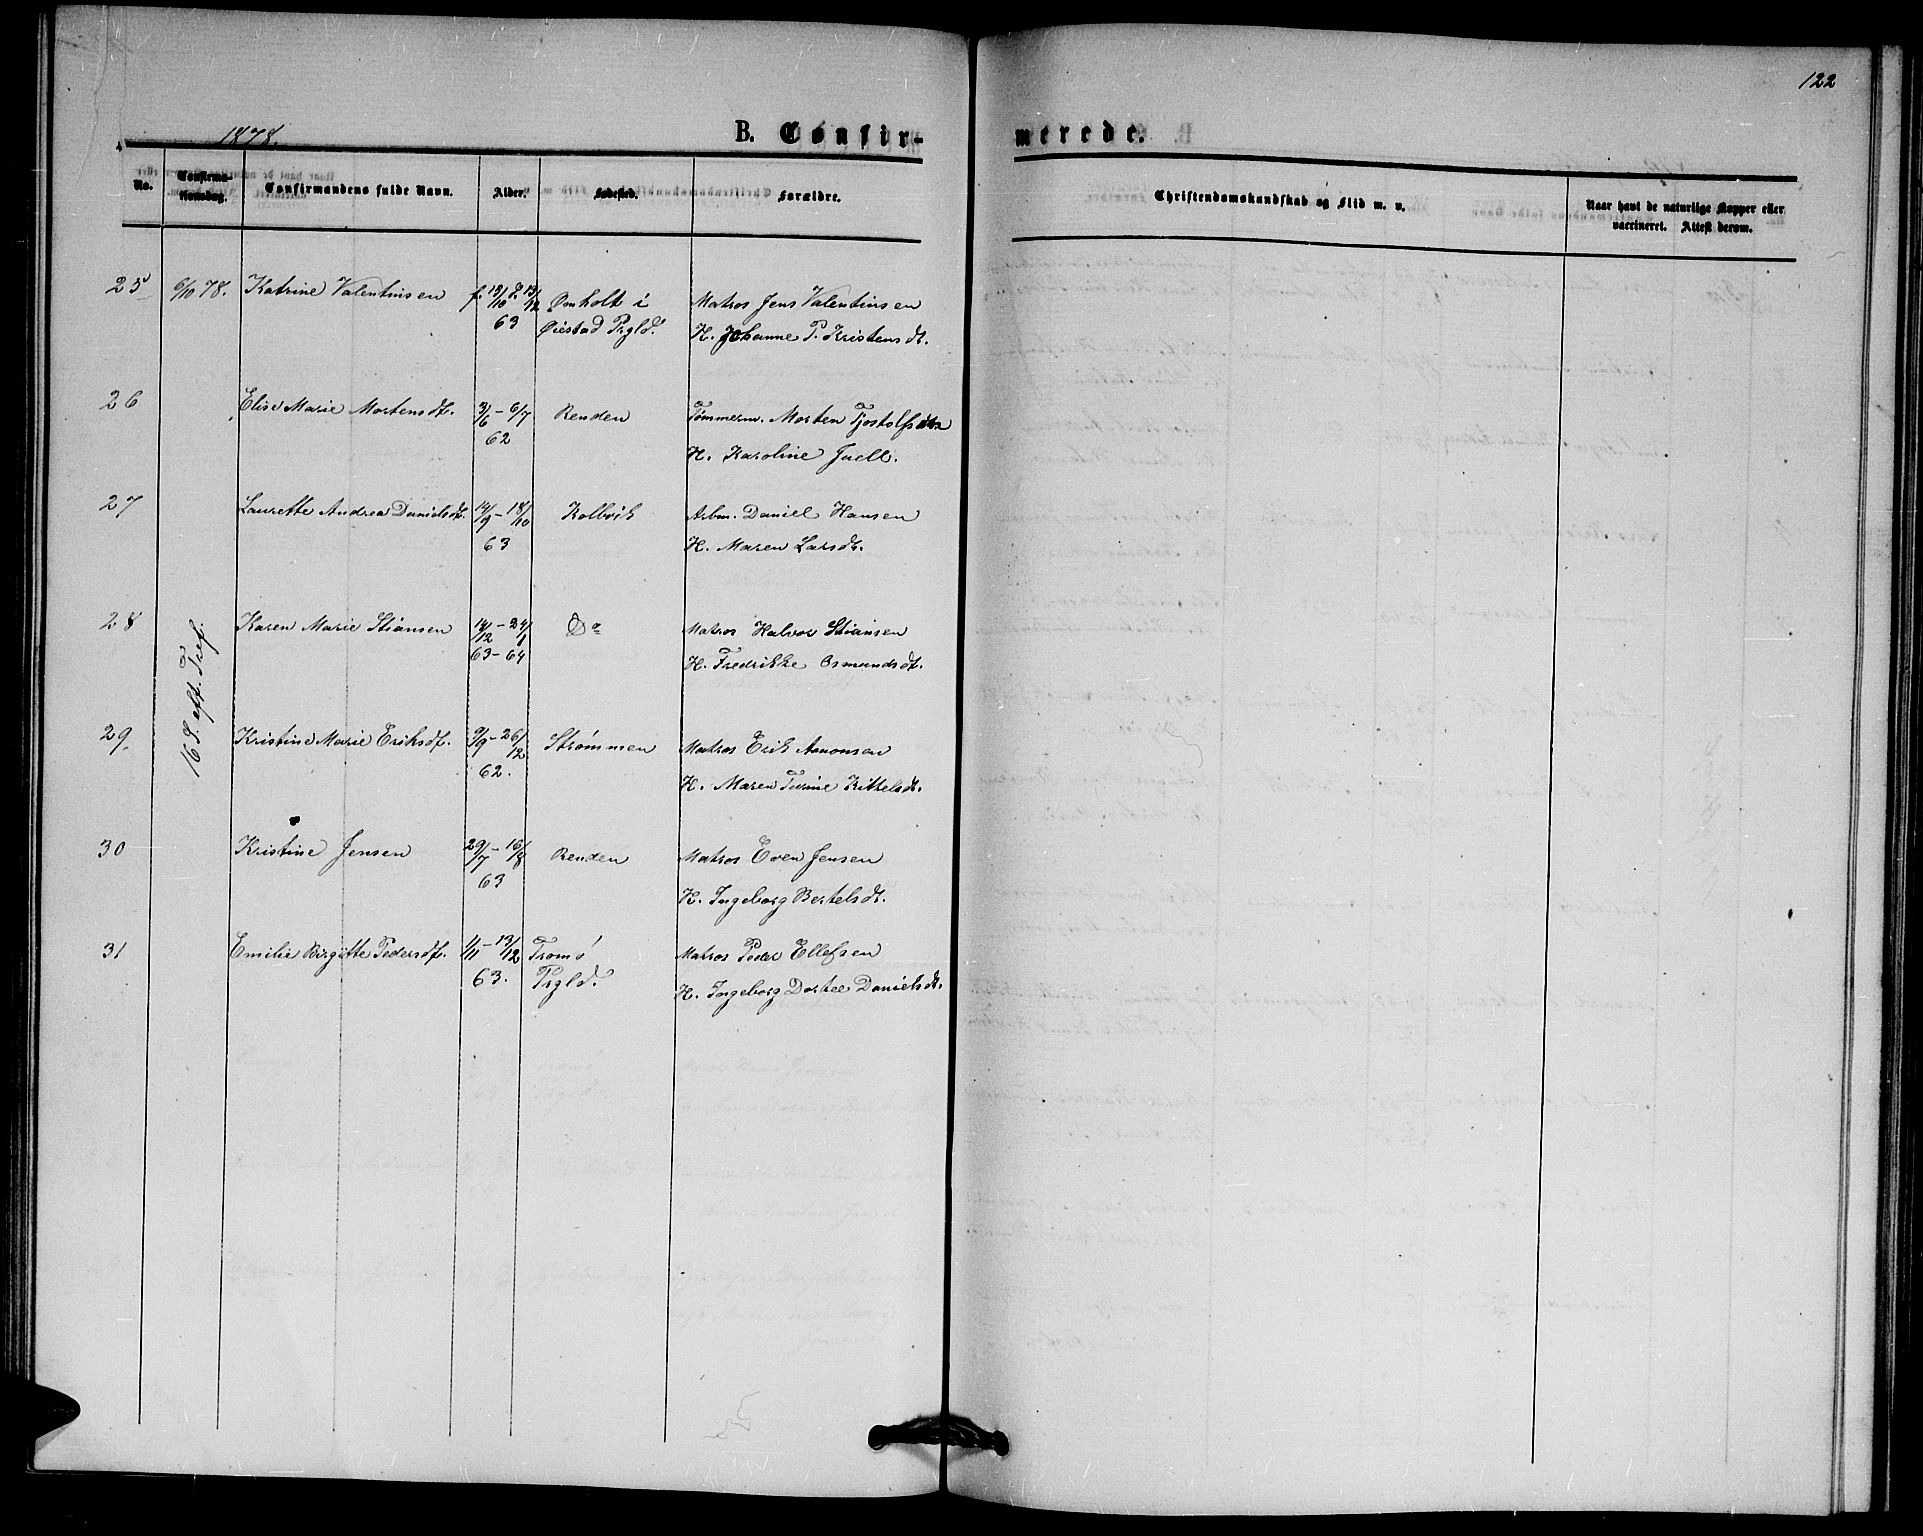 122
1878.
B. Confirmerede.
No.
Confirmationsdag.
Confirmandens fulde Navn.
Alder.
Fødested.
Forældre.
Christendomskundskab og Flid m. v.
Naar havt de naturlige Kopper eller
vaccineret. Attest derom.
25 6/10 78. Katrine Valentinsen f. 13/10 d. 13/12 Omholt i Matros Jens Valentinsen
63 Øiestad Prgld. H. Johanne P. Kristensdt.
16 S. eft. Tref.
26 Elise Marie Mortensdt. 3/6 - 6/7 Renden Tømmerm. Morten Tjostolfsen
62 H. Karoline Juell.
27 Laurette Andrea Danielsdt. 14/9 - 18/10 Kolbvik Arbm. Daniel Hansen
63 H. Maren Larsdt.
28 Karen Marie Stiansen 14/12 - 24/1 Do Matros Halvor Stiansen
63 - 64 H. Fredrikke Osmundsdt.
29 Kristine Marie Eriksdt. 9/9 - 26/12 Strømmen Matros Erik Aanonsen
62. H. Maren Turine Kittelsdt.
30 Kristine Jensen 29/7 - 16/8 Renden Matros Even Jensen
63 H. Ingeborg Bertelsdt.
31 Emilie Birgitte Pedersdt. 1/11 - 13/12 Tromø Matros Peder Ellefsen
63. Prgld. H. Ingeborg Dortee Danielsdt.